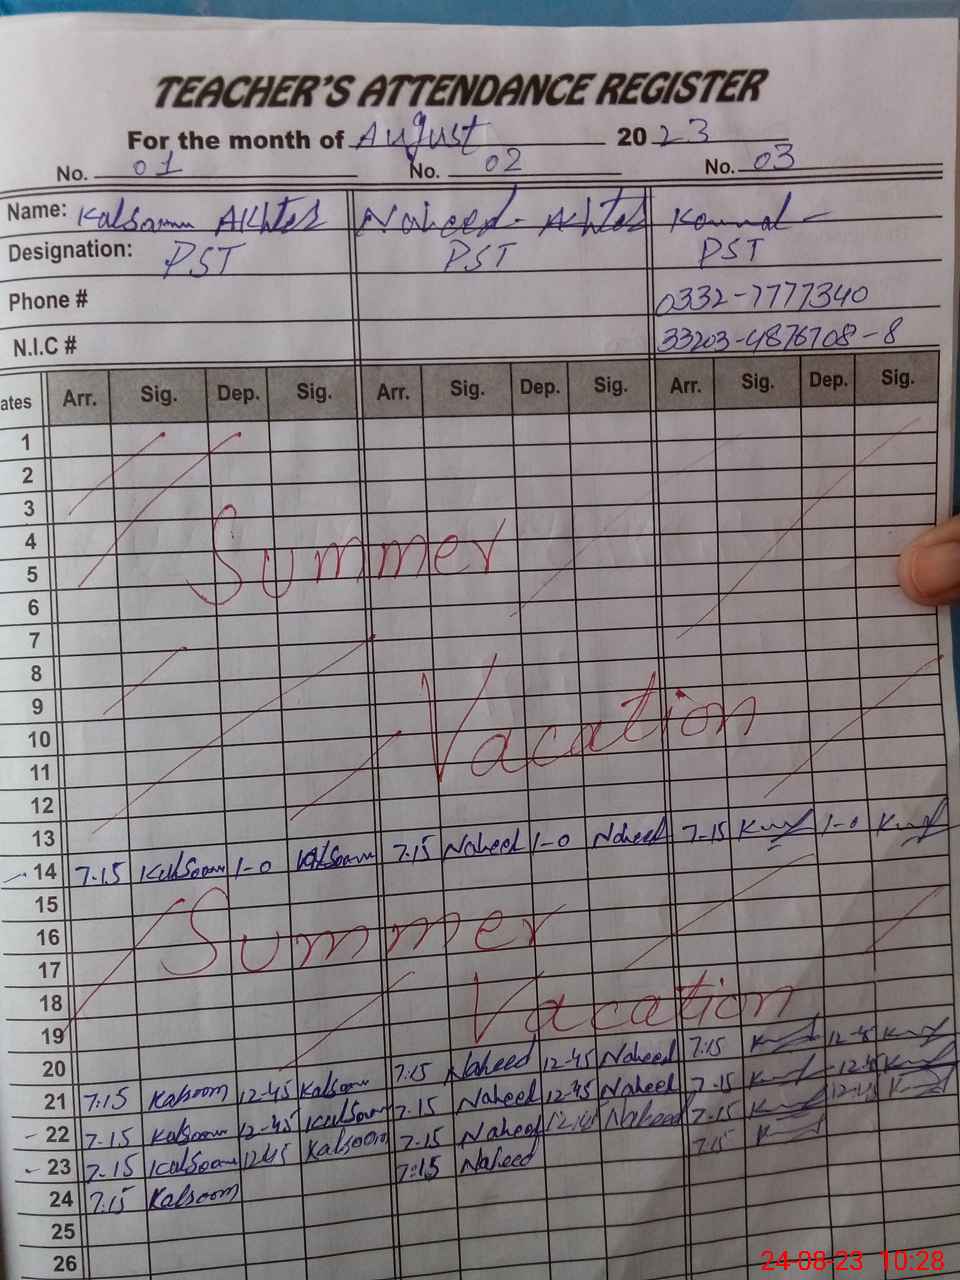 TEACHER'S ATTENDANCE REGISTER
For the month of August 2023
No. 01 No. 02 No. 03
Name: Kalsoom Akhter Naheed Akhter Komal
Designation: PST PST PST
Phone # 0332-7777340
N.I.C # 33203-4876708-8
ates Arr. Sig. Dep. Sig. Arr. Sig. Dep. Sig. Arr. Sig. Dep. Sig.
1
2
3
4 Summer
5
6
7
8
9
10 Vacation
11
12
13
14 7.15 Kalsoom 1-0 Kalsoom 7.15 Naheed 1-0 Naheed 7-15 1-0
15
16 Summer
17
18
19 Vacation
20
21 7:15 Kalsoom 12-45 Kalsoom 7:15 Naheed 12-45 Naheed 7:15 12-45
22 7-15 Kalsoom 12-45 Kalsoom 7-15 Naheed 12-45 Naheed 7-15 12-45
23 7-15 Kalsoom 1245 Kalsoom 7-15 Naheed 12-45 Naheed 7-15 12-45
24 7:15 Kalsoom 7:15 Naheed 7:15
25
26
24-08-23 10:28